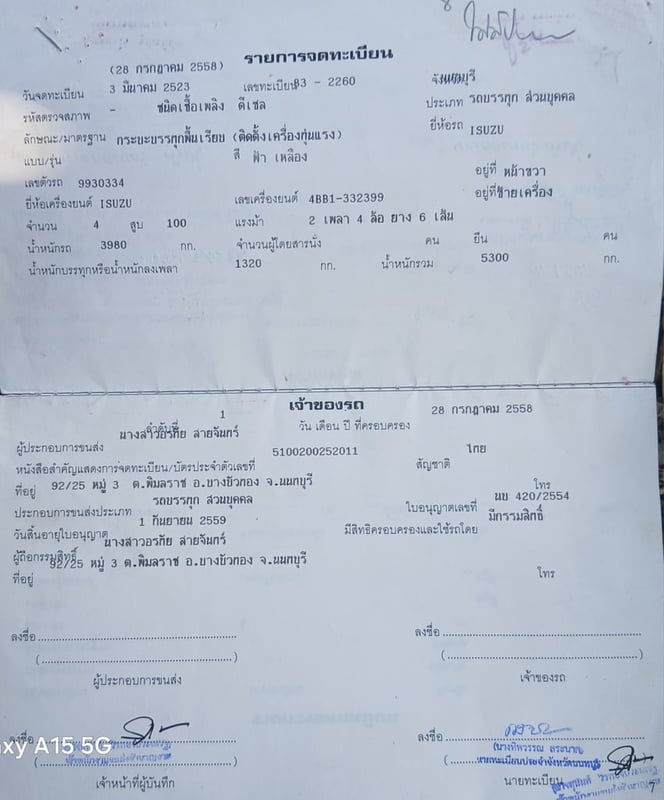 รายการจดทะเบียน
(28 กรกฎาคม 2558)
วันจดทะเบียน 3 มีนาคม 2523 เลขทะเบียน 83 - 2260 จังหวัด นนทบุรี
รหัสตรวจสภาพ - ชนิดเชื้อเพลิง ดีเซล ประเภท รถบรรทุก ส่วนบุคคล
ลักษณะ/มาตรฐาน กระบะบรรทุกพื้นเรียบ (ติดตั้งเครื่องทุ่นแรง) ยี่ห้อรถ ISUZU
แบบ/รุ่น สี ฟ้า เหลือง
เลขตัวรถ 9930334 อยู่ที่ หน้าขวา
ยี่ห้อเครื่องยนต์ ISUZU เลขเครื่องยนต์ 4BB1-332399 อยู่ที่ ซ้ายเครื่อง
จำนวน 4 สูบ 100 แรงม้า 2 เพลา 4 ล้อ ยาง 6 เส้น
น้ำหนักรถ 3980 กก. จำนวนผู้โดยสารนั่ง คน ยืน คน
น้ำหนักบรรทุกหรือน้ำหนักลงเพลา 1320 กก. น้ำหนักรวม 5300 กก.
เจ้าของรถ
ลำดับที่ 1 วัน เดือน ปี ที่ครอบครอง 28 กรกฎาคม 2558
ผู้ประกอบการขนส่ง นางสาวอรทัย สายจันทร์
หนังสือสำคัญแสดงการจดทะเบียน/บัตรประจำตัวเลขที่ 5100200252011 สัญชาติ ไทย
ที่อยู่ 92/25 หมู่ 3 ต.พิมลราช อ.บางบัวทอง จ.นนทบุรี โทร
ประกอบการขนส่งประเภท รถบรรทุก ส่วนบุคคล ใบอนุญาตเลขที่ นบ 420/2554
วันสิ้นอายุใบอนุญาต 1 กันยายน 2559 มีสิทธิครอบครองและใช้รถโดย มีกรรมสิทธิ์
ผู้ถือกรรมสิทธิ์ นางสาวอรทัย สายจันทร์
ที่อยู่ 92/25 หมู่ 3 ต.พิมลราช อ.บางบัวทอง จ.นนทบุรี โทร
ลงชื่อ ลงชื่อ
( ) ( )
ผู้ประกอบการขนส่ง เจ้าของรถ
ลงชื่อ ลงชื่อ
(นางทิพวรรณ
นายทะเบียนประจำจังหวัดนนทบุรี
เจ้าหน้าที่ผู้บันทึก นายทะเบียน
axy A15 5G